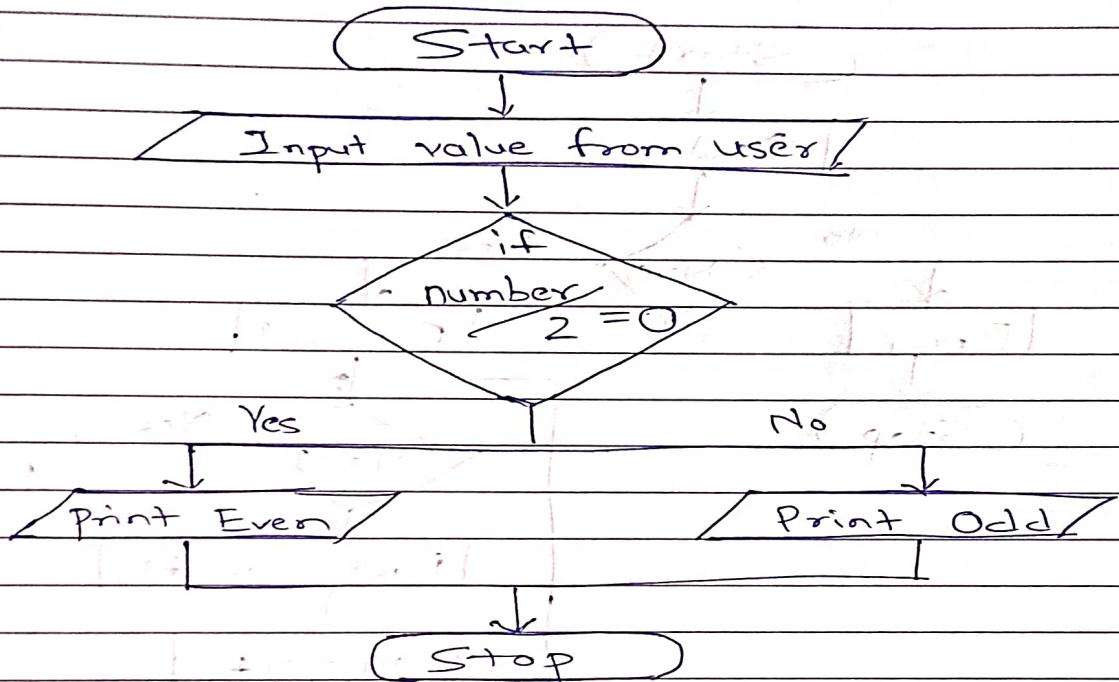 Start
Input value from user
if
number/2 = 0
Yes No
Print Even Print Odd
Stop